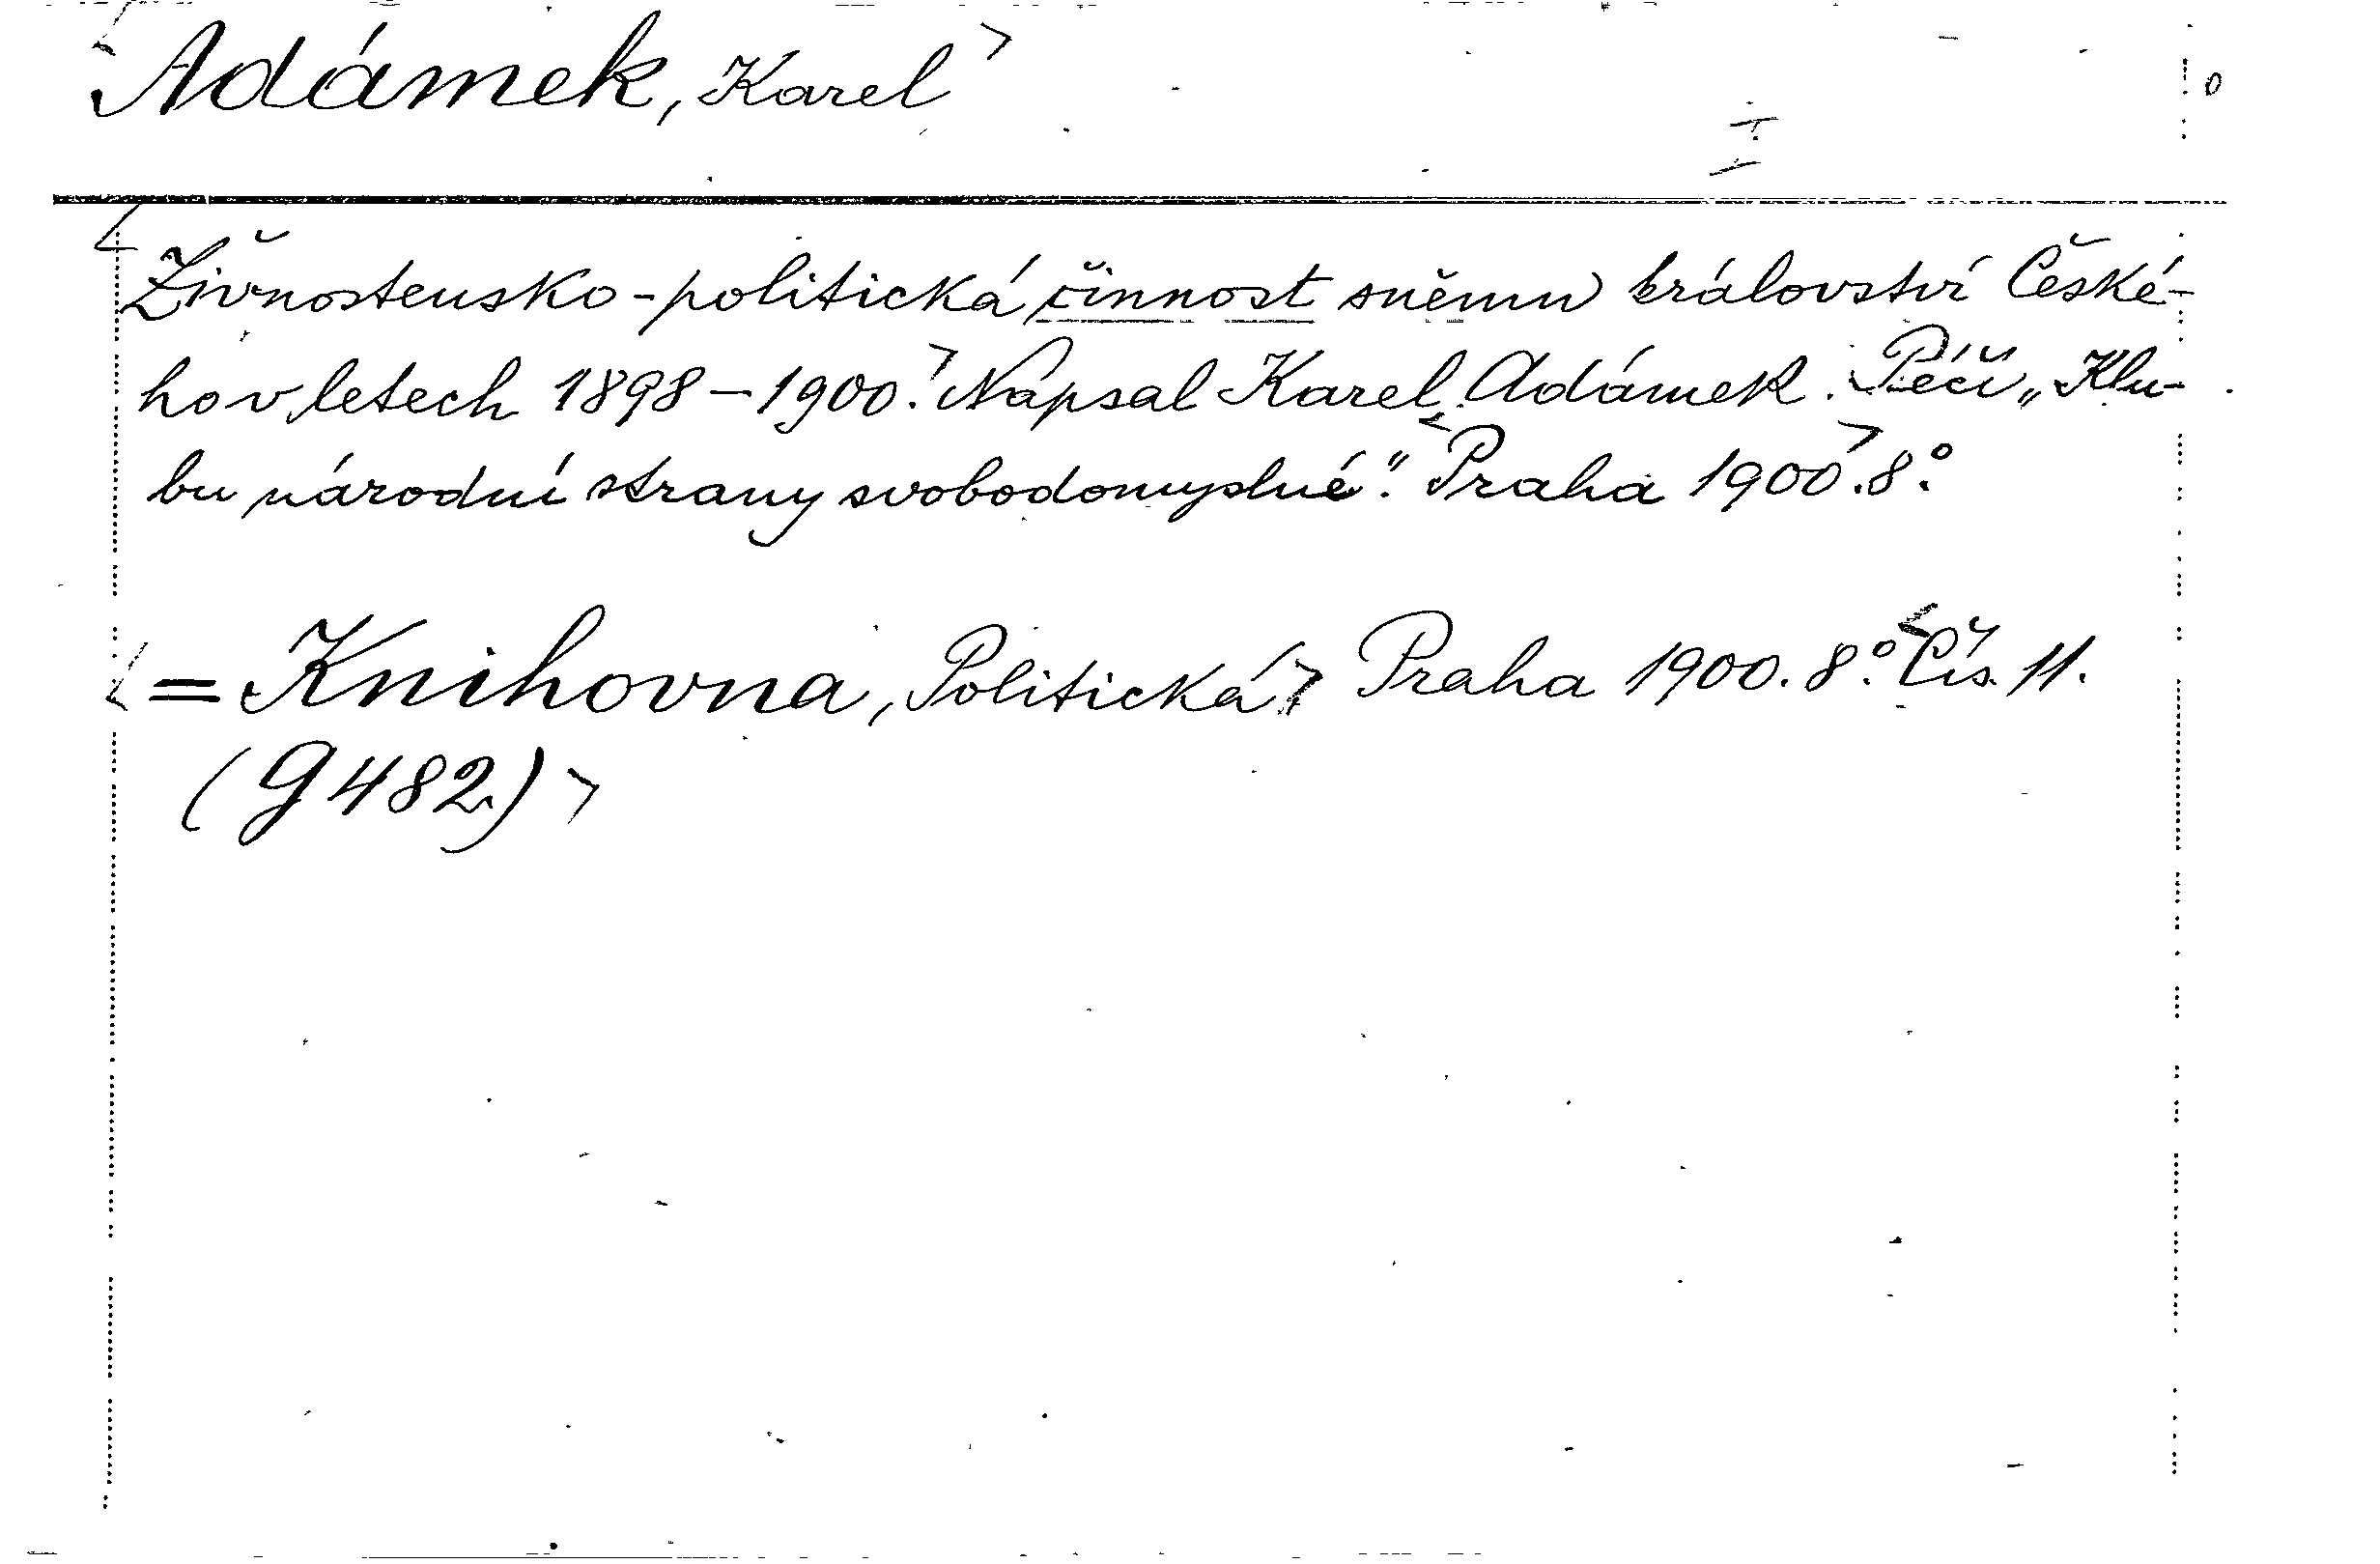 <Adámek, Karel>
<Živnostensko-politická činnost sněmu království České-
ho v letech 1898–1900.> Napsal Karel Adámek. Péčí „Klu-
bu národní strany svobodomyslné". <Praha 1900>. 8°.
<= Knihovna, Politická> Praha 1900. 8°. <Čís. 11.
(G 482)>